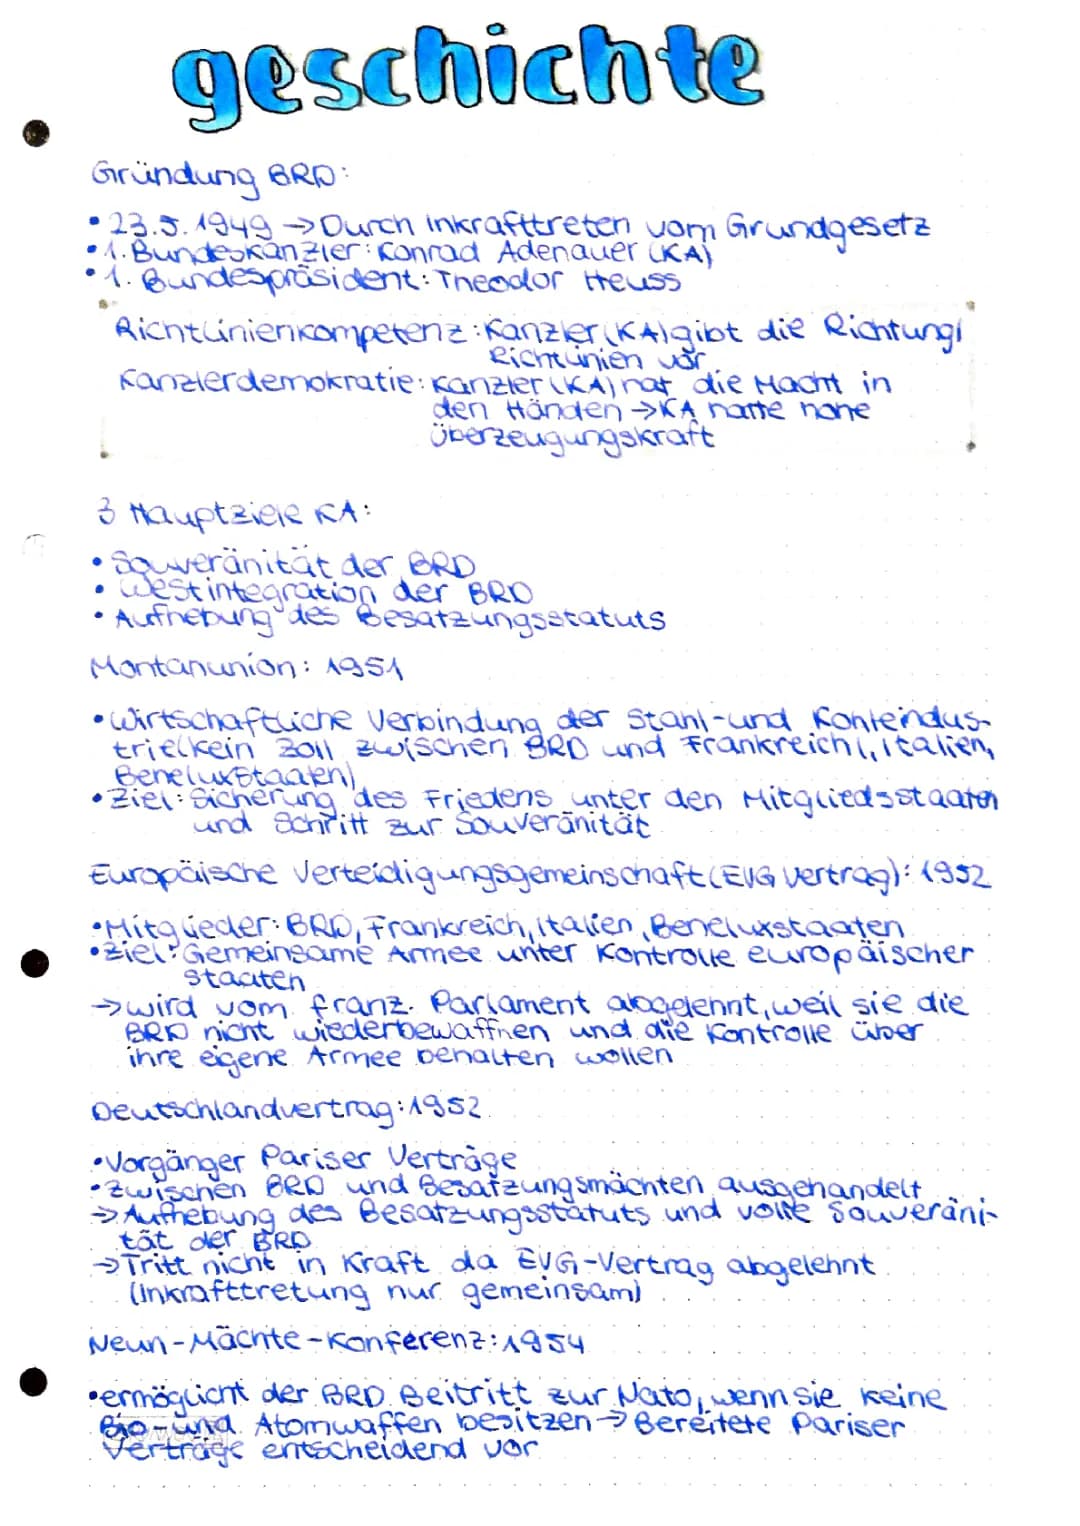 geschichte
Gründung BRD:
• 23.5.1949 → Durch Inkrafttreten vom Grundgesetz
• 1. Bundeskanzler: Konrad Adenauer (KA)
• 1. Bundespräsident: Theodor Heuss
Richtlinienkompetenz: Kanzler (KA) gibt die Richtung/
Richtlinien vor
Kanzlerdemokratie: Kanzler (KA) hat die Macht in
den Händen → KA hatte hohe
Überzeugungskraft
3 Hauptziele KA:
• Souveränität der BRD
• Westintegration der BRD
• Aufhebung des Besatzungsstatuts
Montanunion: 1951
• Wirtschaftliche Verbindung der Stahl-und Kohleindus-
trie(kein Zoll zwischen BRD und Frankreich(, Italien,
Beneluxstaaten)
• Ziel: Sicherung des Friedens unter den Mitgliedsstaaten
und Schritt zur Souveränität
Europäische Verteidigungsgemeinschaft (EVG Vertrag): 1952
• Mitglieder: BRD, Frankreich, Italien, Beneluxstaaten
• Ziel: Gemeinsame Armee unter Kontrolle europäischer
staaten
→ wird vom franz. Parlament abgelehnt, weil sie die
BRD nicht wiederbewaffnen und die Kontrolle über
ihre eigene Armee behalten wollen
Deutschlandvertrag: 1952
• Vorgänger Pariser Verträge
• Zwischen BRD und Besatzungsmächten ausgehandelt
→ Aufhebung des Besatzungsstatuts und volle Souveräni-
tät der BRD
→ Tritt nicht in Kraft da EVG-Vertrag abgelehnt
(Inkrafttretung nur gemeinsam)
Neun-Mächte-Konferenz: 1954
• ermöglicht der BRD Beitritt zur Nato, wenn sie keine
Bio-und Atomwaffen besitzen → Bereitete Pariser
Verträge entscheidend vor